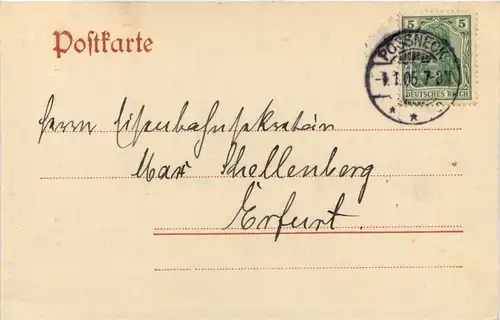 Postkarte
5 5
DEUTSCHES REICH
POSSNECK
1.1.05.7-8N.
Herrn Eisenbahnsekretär
Max Schellenberg
Erfurt.